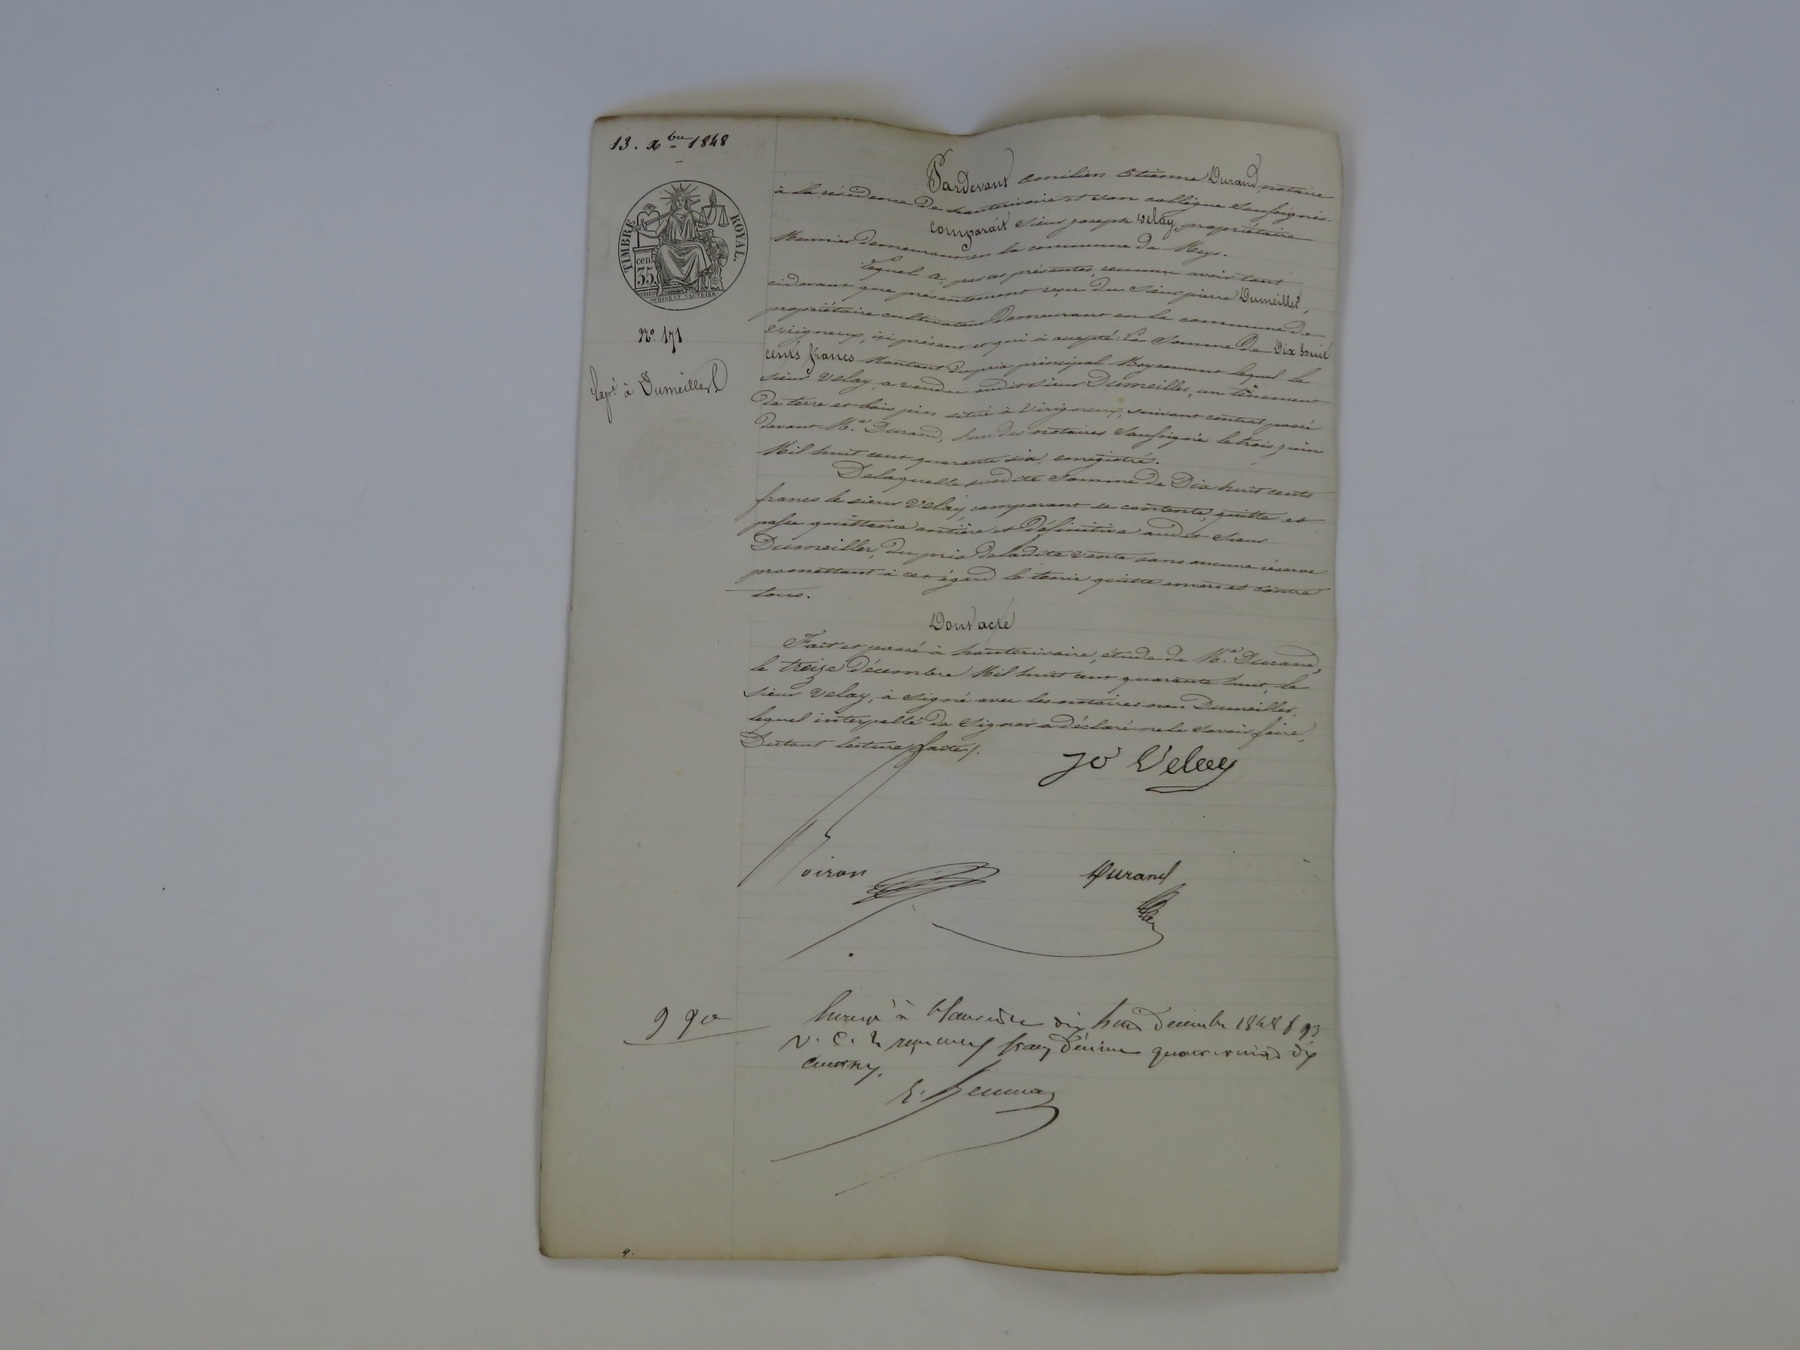 13. Xbre 1848
TIMBRE ROYAL.
cen. 35
No. 171
Payé à Dumeiller
Pardevant Emilien Etienne Durand notaire
à la résidence de hauterivoire et son collègue soussignés.
Comparait Sieur joseph Velay, propriétaire
Meunier demeurant en la commune de Meys.
Lequel a, par ces présentes, reconnu avoir tant
cidevant que présentement reçu du Sieur pierre Dumeiller,
propriétaire cultivateur demeurant en la commune de
Virigneux, ici présent et qui à accepté la Somme de Dix huit
cents francs Montant du prix principal Moyennant lequel le
sieur Velay a vendu audit sieur Dumeiller, un tènement
de terre et bois pin situé à Virigneux, suivant contrat passé
devant Me. Durand, l'un des notaires soussignés le trois juin
Mil huit cent quarante six, enregistré.
De laquelle susdite Somme de Dix huit cents
francs le sieur Velay, comparant se contente, quitte et
passe quittance entière et définitive audit Sieur
Dumeiller, du prix de ladite vente sans aucune réserve
promettant à cet égard le tenir quitte envers et contre
tous.
Dont acte
Fait et passé à hauterivoire, étude de Me. Durand,
le treize décembre Mil huit cent quarante huit, le
sieur Velay, à signé avec les notaires non Dumeiller,
lequel interpellé de signer a déclaré ne le savoir faire,
Du tout lecture faite.
Jo Velay
Voiron Durand
9 90
à dix huit Decembre 1848 f 93
V. C. 2 reçu neuf francs Décime quatre vingt dix
centimes.